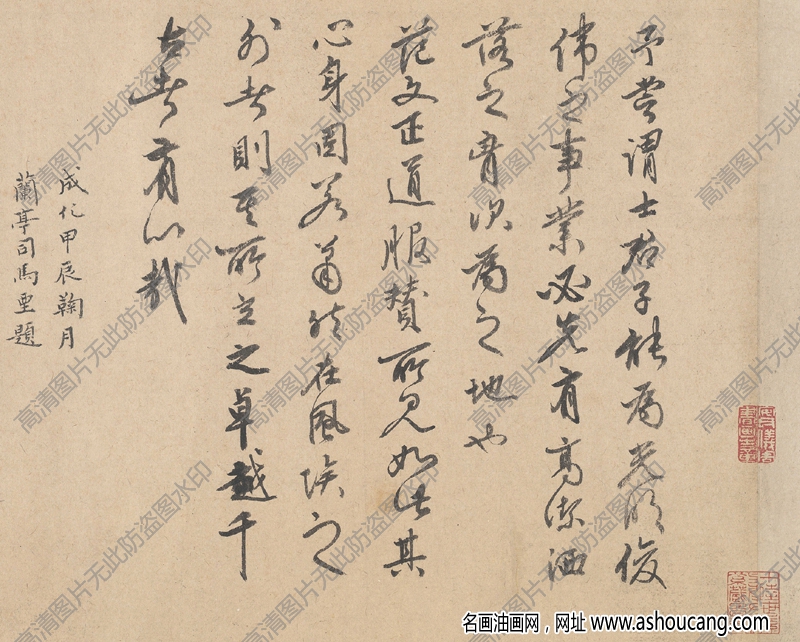 予嘗謂士君子能為光明俊
偉之事業必先有高潔洒
落之胷次為之地也
范文正道服贊所見如此其
心身固若蕭然在風埃之
外者則其所立之卓越千
古者有以哉
成化甲辰鞠月
蘭亭司馬垔題
高清图片无此防盗图水印
名画油画网，网址 www.ashoucang.com